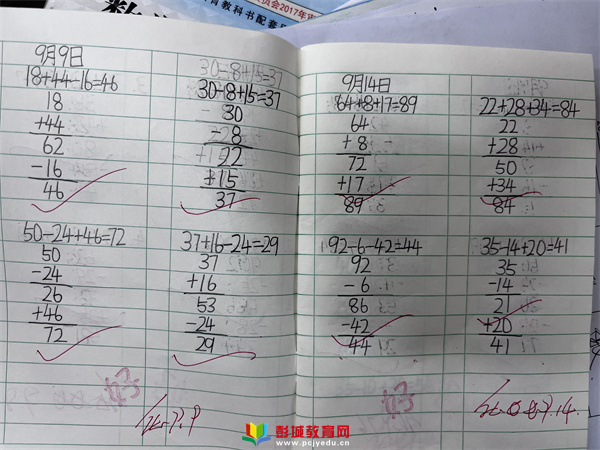 育教科书配套
委会2017年审
9月9日
18+44-16=46
18
+44
62
-16
46
30-8+15=37
30-8+15=37
30
-8
22
+15
37
50-24+46=72
50
-24
26
+46
72
37+16-24=29
37
+16
53
-24
29
9月14日
64+8+17=89
64
+8
72
+17
89
22+28+34=84
22
+28
50
+34
84
92-6-42=44
92
-6
86
-42
44
35-14+20=41
35
-14
21
+20
41
彭城教育网
www.pcjyedu.cn